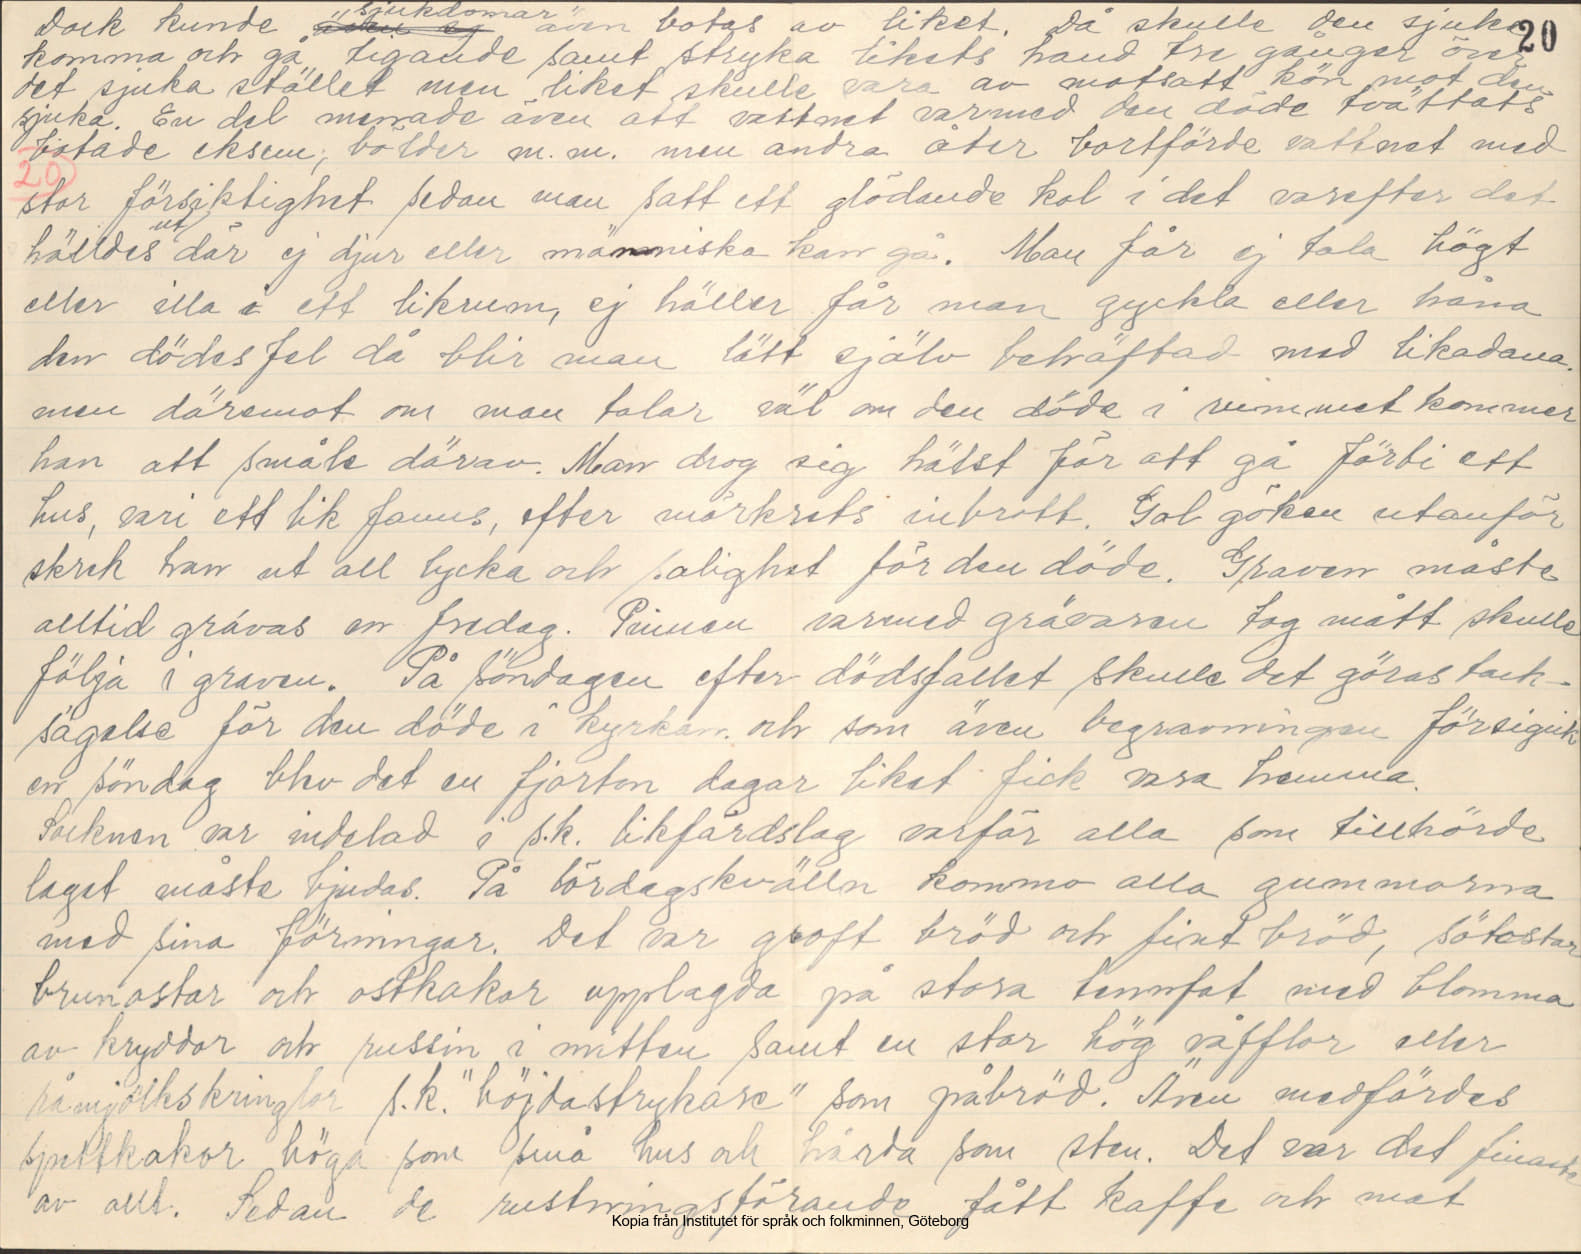 20
Dock kunde sjukdomar även botas av liket. Då skulle den sjuka
komma och gå tigande samt stryka likets hand tre gånger över
det sjuka stället men liket skulle vara av motsatt kön mot den
sjuka. En del menade även att vattnet varmed den döde tvättats
botade eksem, bölder m.m. men andra åter bortförde vattnet med
20
stor försiktighet sedan man satt ett glödande kol i det varefter det
hälldes ut där ej djur eller människa kan gå. Man får ej tala högt
eller illa i ett likrum, ej häller får man gyckla eller håna
den dödes fel då blir man lätt själv behäftad med likadana.
men däremot om man talar väl om den döde i rummet kommer
han att småle därav. Man drog sig hälst för att gå förbi ett
hus, vari ett lik fanns, efter mörkrets inbrott. Gol göken utanför
skrek han ut all lycka och salighet för den döde. Graven måste
alltid grävas en fredag. Pinnen varmed grävaren tog mått skulle
följa i graven. På söndagen efter dödsfallet skulle det göras tack-
sägelse för den döde i kyrkan och som även begravningen försigick
en söndag blev det en fjorton dagar liket fick vara hemma.
Socknen var indelad i s.k. likfärdslag varför alla som tillhörde
laget måste bjudas. På lördagskvälln kommo alla gummorna
med sina förningar. Det var groft bröd och fint bröd, sötostar
brunostar och ostkakor upplagda på stora tennfat med blomma
av kryddor och russin i mitten samt en stor hög våfflor eller
råmjölkskringlor s.k. "höjdastrykare" som påbröd. Även medfördes
spettkakor höga som små hus och hårda som sten. Det var det finaste
av allt. Sedan de rustningsförande fått kaffe och mat
Kopia från Institutet för språk och folkminnen, Göteborg